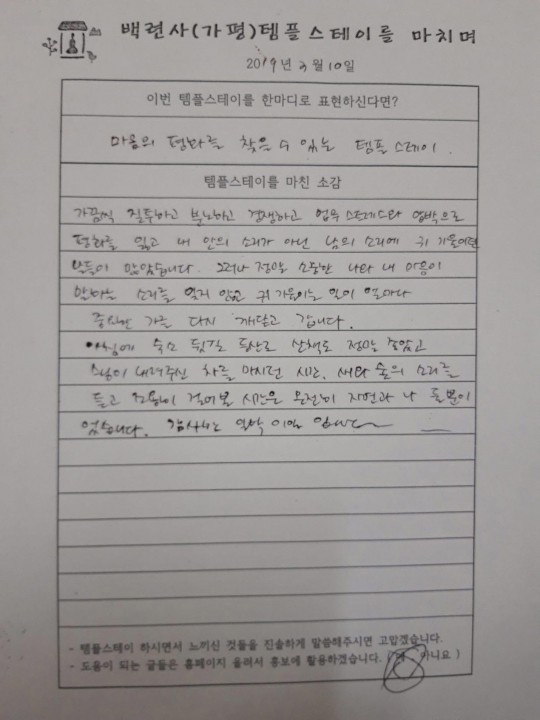 백련사(가평)템플스테이를 마치며
2019년 3월 10일
이번 템플스테이를 한마디로 표현하신다면?
마음의 평화를 찾을 수 있는 템플스테이.
템플스테이를 마친 소감
가끔씩 질투하고 분노하고 경쟁하고 업무 스트레스와 압박으로
평화를 잃고 내 안의 소리가 아닌 남의 소리에 귀 기울이던
날들이 많았습니다. 그러나 정말 소중한 나와 내 마음이
말하는 소리를 잊지 않고 귀 기울이는 일이 얼마나
중요한 가를 다시 깨닫고 갑니다.
아침에 숙소 뒷길 등산로 산책도 정말 좋았고
스님이 내려주신 차를 마시던 시간, 새와 숲의 소리를
듣고 조용히 걸어본 시간은 온전히 자연과 나 둘뿐이
었습니다. 감사한 일박 이일 입니다
- 템플스테이 하시면서 느끼신 것들을 진솔하게 말씀해주시면 고맙겠습니다.
- 도움이 되는 글들은 홈페이지 올려서 홍보에 활용하겠습니다. ( 예 아니요 )